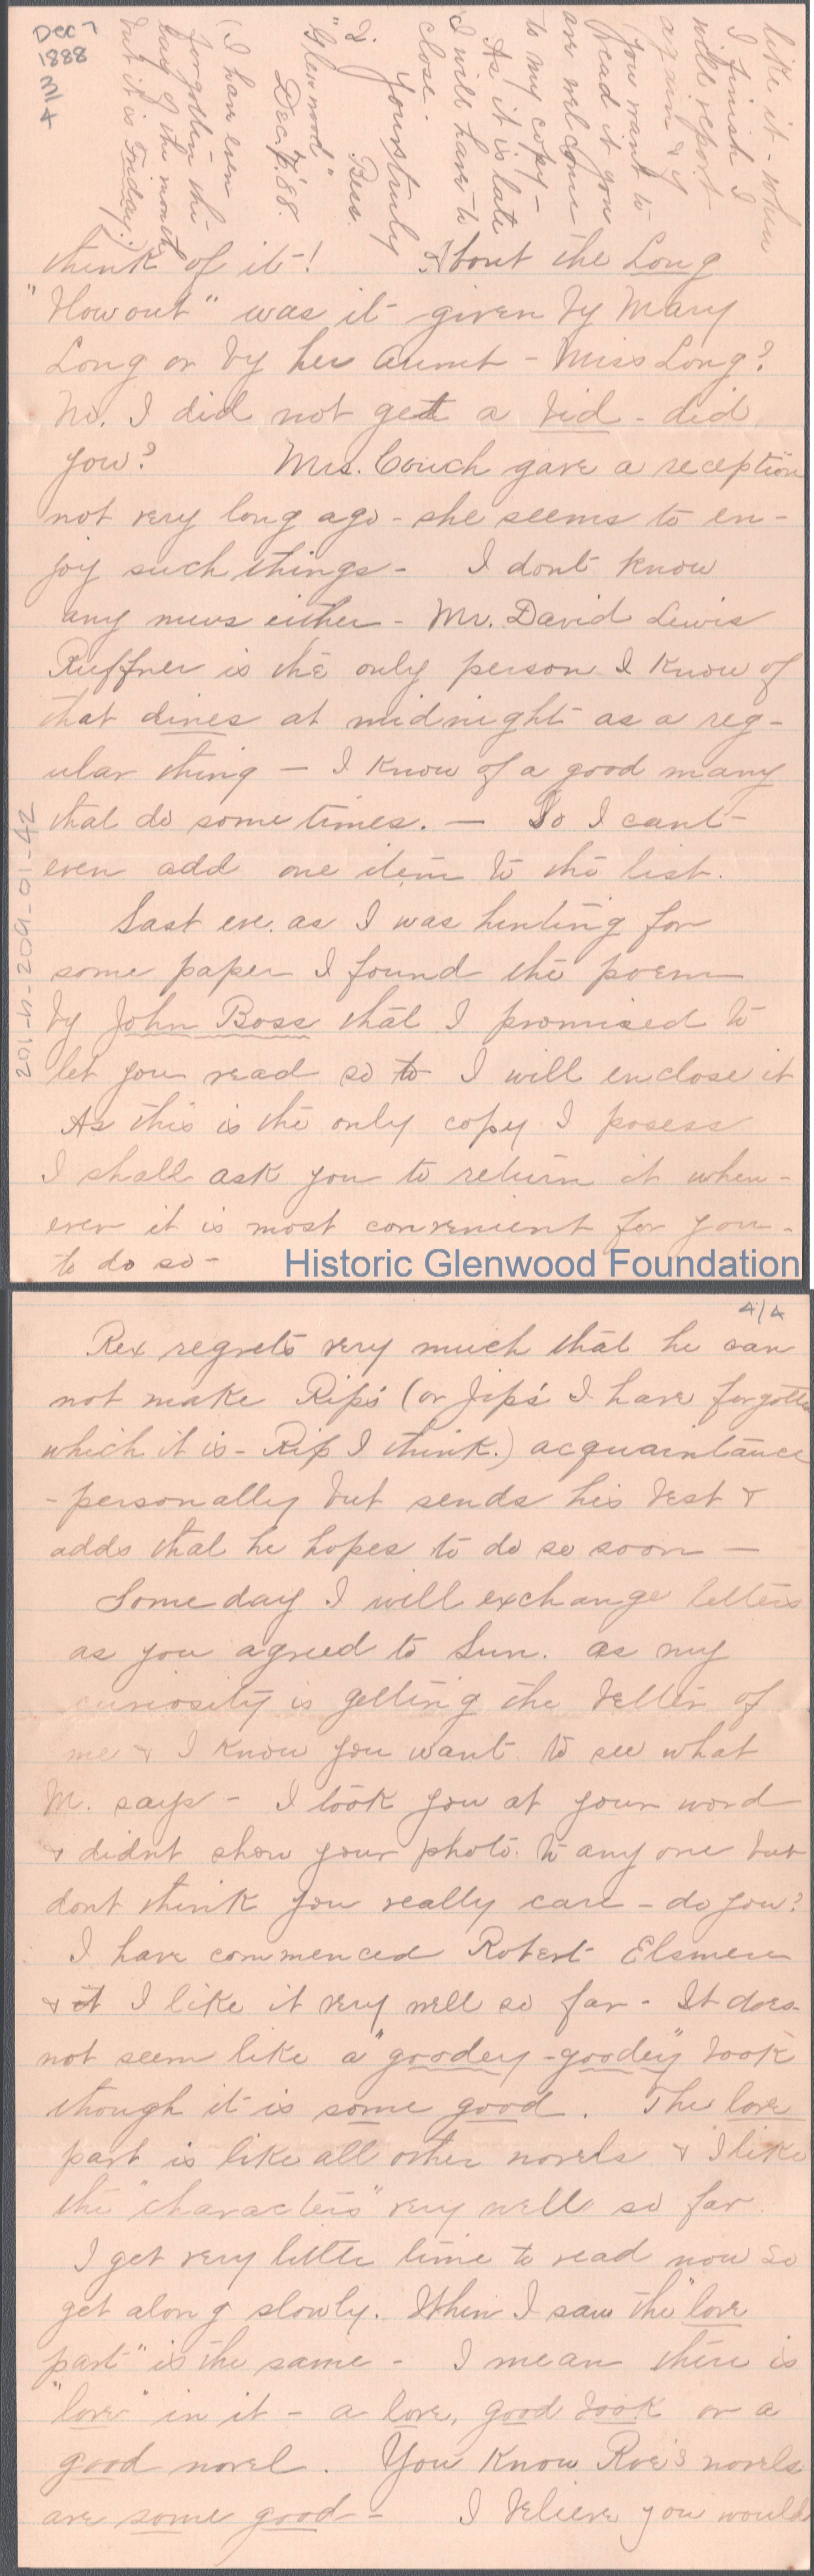 Dec 7
1888
3/4
think of it! About the Long
"Blowout" was it given by Mary
Long or by her aunt - Miss Long?
No. I did not get a bid - did
you? Mrs. Couch gave a reception
not very long ago - she seems to en-
joy such things - I dont know
any news either - Mr. David Lewis
Ruffner is the only person I know of
that dines at midnight as a reg-
ular thing - I know of a good many
that do some times. - So I cant
even add one item to the list.
Last eve. as I was hunting for
some paper I found the poem
by John Boss that I promised to
let you read so I will enclose it
As this is the only copy I posess
I shall ask you to return it when-
ever it is most convenient for you -
to do so -
201-H-209-01-42
Historic Glenwood Foundation
4/4
Rex regrets very much that he can
not make Rip's (or Jip's I have forgotten
which it is - Rip I think.) acquaintance
- personally but sends his best &
adds that he hopes to do so soon -
Some day I will exchange letters
as you agreed to Sun. as my
curiosity is getting the better of
me & I know you want to see what
M. says - I took you at your word
& didnt show your photo. to any one but
dont think you really care - do you?
I have commenced Robert Elsmere
& I like it very well so far - It does
not seem like a "goodey-goodey" book
though it is some good. The love
part is like all other novels & I like
the "characters" very well so far
I get very little time to read now so
get along slowly. When I saw the "love
part" is the same - I mean there is
"love" in it - a love, good book or a
good novel. You know Roe's novels
are some good - I believe you would
like it - when
I finish I
will report
again & if
you want to
read it you
are welcome
to my copy -
As it is late
I will have to
close.
Yours truly
Bess.
"Glenwood"
Dec. 7. '88.
(I have even
forgotten the
day of the month
but it is Friday.)